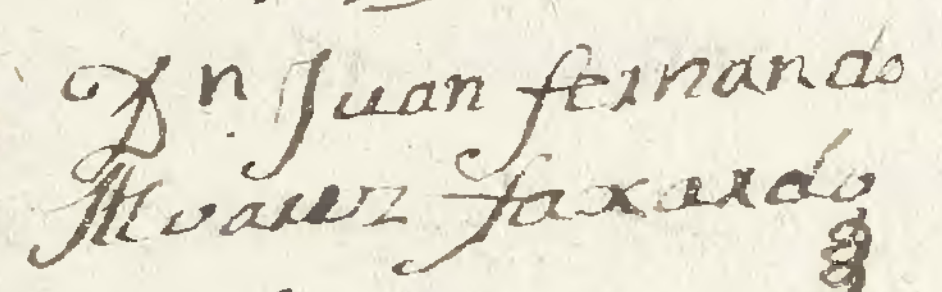 Dn. Juan fernando
Alvarez faxardo